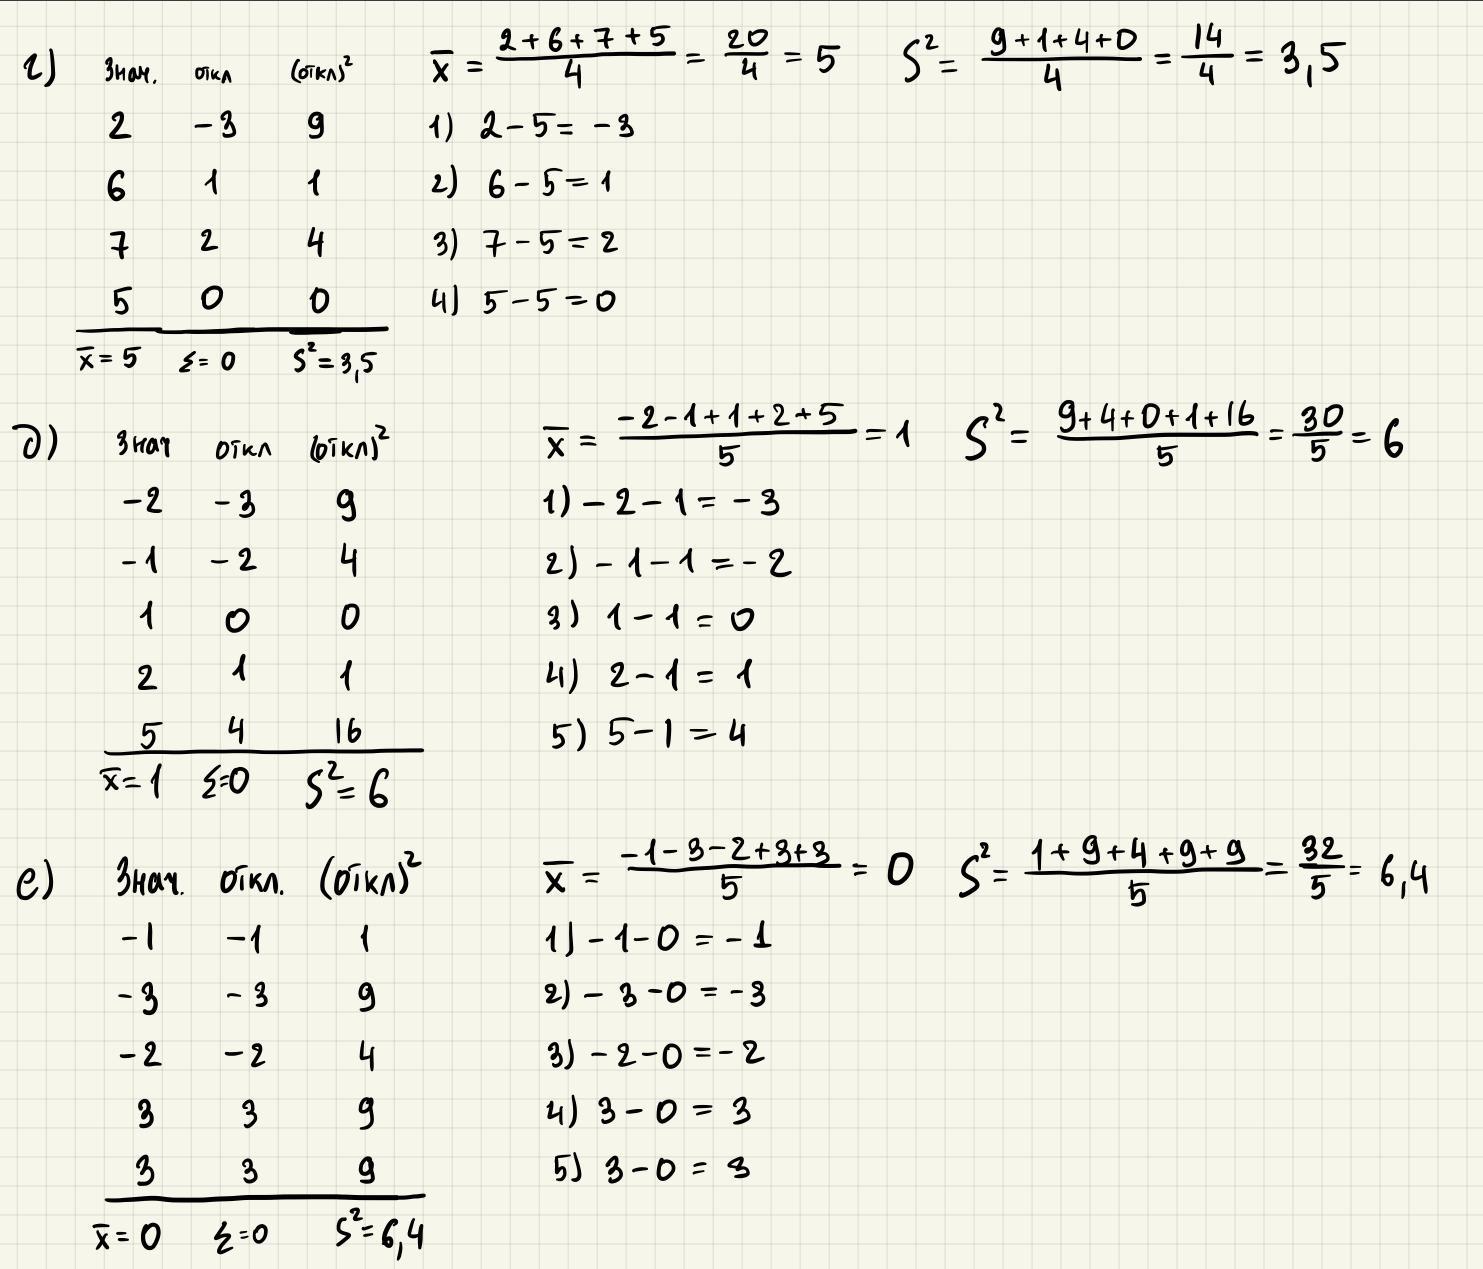 г) Знач. откл (откл)² x̄ = (2+6+7+5)/4 = 20/4 = 5 S² = (9+1+4+0)/4 = 14/4 = 3,5
2 -3 9 1) 2-5= -3
6 1 1 2) 6-5=1
7 2 4 3) 7-5=2
5 0 0 4) 5-5=0
x̄=5 Σ=0 S²=3,5
д) Знач откл (откл)² x̄ = (-2-1+1+2+5)/5 = 1 S² = (9+4+0+1+16)/5 = 30/5 = 6
-2 -3 9 1) -2-1 = -3
-1 -2 4 2) -1-1 = -2
1 0 0 3) 1-1 = 0
2 1 1 4) 2-1 = 1
5 4 16 5) 5-1 = 4
x̄=1 Σ=0 S²=6
е) Знач. откл. (откл)² x̄ = (-1-3-2+3+3)/5 = 0 S² = (1+9+4+9+9)/5 = 32/5 = 6,4
-1 -1 1 1) -1-0 = -1
-3 -3 9 2) -3-0 = -3
-2 -2 4 3) -2-0 = -2
3 3 9 4) 3-0 = 3
3 3 9 5) 3-0 = 3
x̄=0 Σ=0 S²=6,4